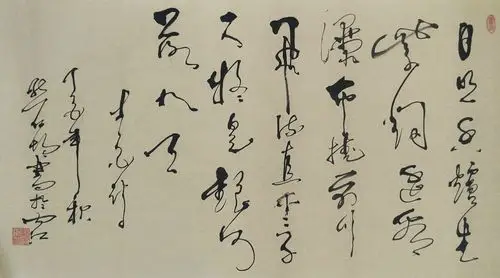 日照香爐生
紫烟遥看
瀑布掛前川
飛流直下三千
尺疑是銀河
落九天
李白詩
年秋
書於